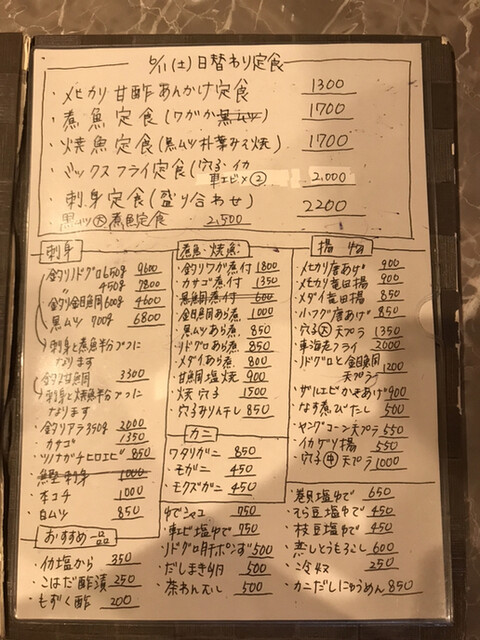 6/11(土)日替わり定食
・メヒカリ甘酢あんかけ定食 1300
・煮魚定食(ワガか黒ムツ) 1700
・焼魚定食(黒ムツ朴葉みそ焼) 1700
・ミックスフライ定食(穴子・イカ 車エビ×②) 2,000
・刺身定食(盛り合わせ) 2200
黒ムツ大煮魚定食 2,500
刺身
・釣りノドグロ650g 9600
〃 450g 7800
・釣り金目鯛600g 4600
・黒ムツ 700g 6800
・刺身と煮魚半分づつに
なります
・釣り甘鯛 3300
・刺身と焼魚半分づつに
なります
・釣りアラ350g 2000
・カサゴ 1350
・ツノナガチヒロエビ 850
1000
・本コチ 1000
・白ムツ 850
おすすめ一品
・イカ塩から 350
・こはだ酢漬 250
・もずく酢 200
煮魚・焼魚
・釣りワガ煮付 1800
・カサゴ煮付 1350
・黒鯛煮付 600
・金目鯛あら煮 1000
・黒ムツあら煮 850
・ノドグロあら煮 850
・メダイあら煮 800
・甘鯛塩焼 900
・焼穴子 1500
・穴子みりんテレ 850
カニ
・ワタリガニ 850
・モガニ 450
・モクズガニ 450
・ゆでシャコ 750
・車エビ塩ゆで 750
・ノドグロ肝ポンず 500
・だしまき玉子 500
・茶わんむし 500
揚物
・メヒカリ唐あげ 900
・メヒカリ竜田揚 900
・メダイ竜田揚 850
・小フグ唐あげ 850
・穴子大天プラ 1350
・車海老フライ 2000
・ノドグロと金目鯛
天プラ 1200
・ザルエビかきあげ 900
・なす煮びたし 500
・ヤングコーン天プラ 550
・イカゲソ揚 550
・穴子中天プラ 1000
・巻貝塩ゆで 650
・そら豆塩ゆで 450
・枝豆塩ゆで 450
・蒸しとうもろこし 600
・冷奴 250
・カニだしにゅうめん 850